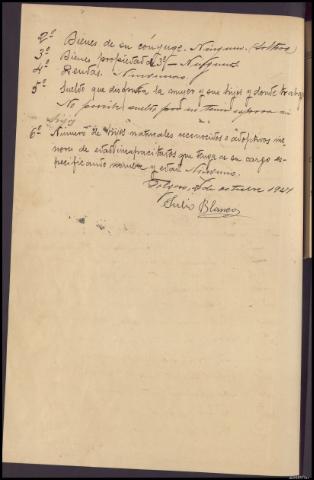 2º Bienes de su cónyuge. Ninguno. (Soltero)
3º Bienes propiedad de 3º – Ninguno
4º Rentas. Ningunas.
5º Sueldo que disfruta la mujer y sus hijos y donde trabaja
No percibe sueldo por no tener esposa ni
hijos
6º Número de hijos naturales reconocidos o adoptivos me-
nores de edad incapacitados que tenga a su cargo es-
pecificando nombre y edad Ninguno.
de octubre 1941
Julio Blanco